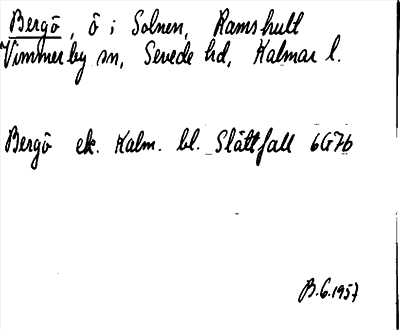 Bergö, ö i Solnen, Ramshult
Vimmerby sn, Sevede hd, Kalmar l.
Bergö ek. Kalm. bl. Slättfall 6G7b
B.G.1957